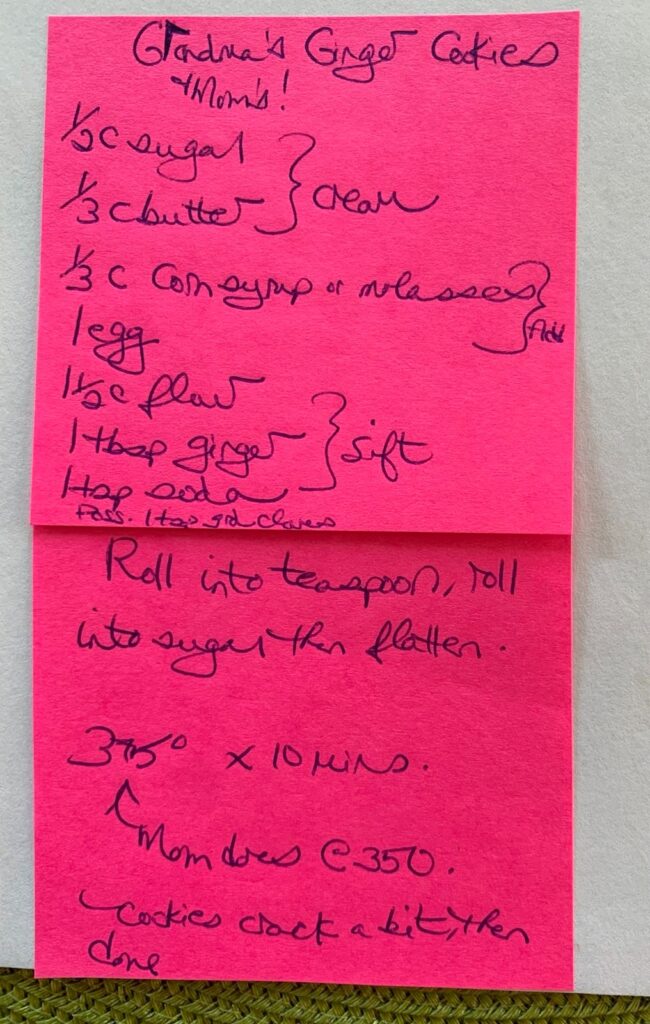 Grandma's Ginger Cookies
+ Mom's!
1/2 c sugar
1/3 c butter } cream
1/3 c Corn syrup or molasses } Add
1 egg
1 1/2 c flour
1 tbsp ginger } sift
1 tsp soda
Poss. 1 tsp grd cloves
Roll into teaspoon, roll
into sugar then flatten.
375° x 10 mins.
Mom does @ 350.
Cookies crack a bit, then
done